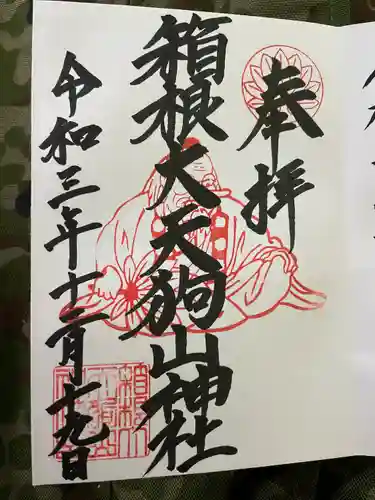 奉拝
箱根大天狗山神社
令和三年十二月十九日